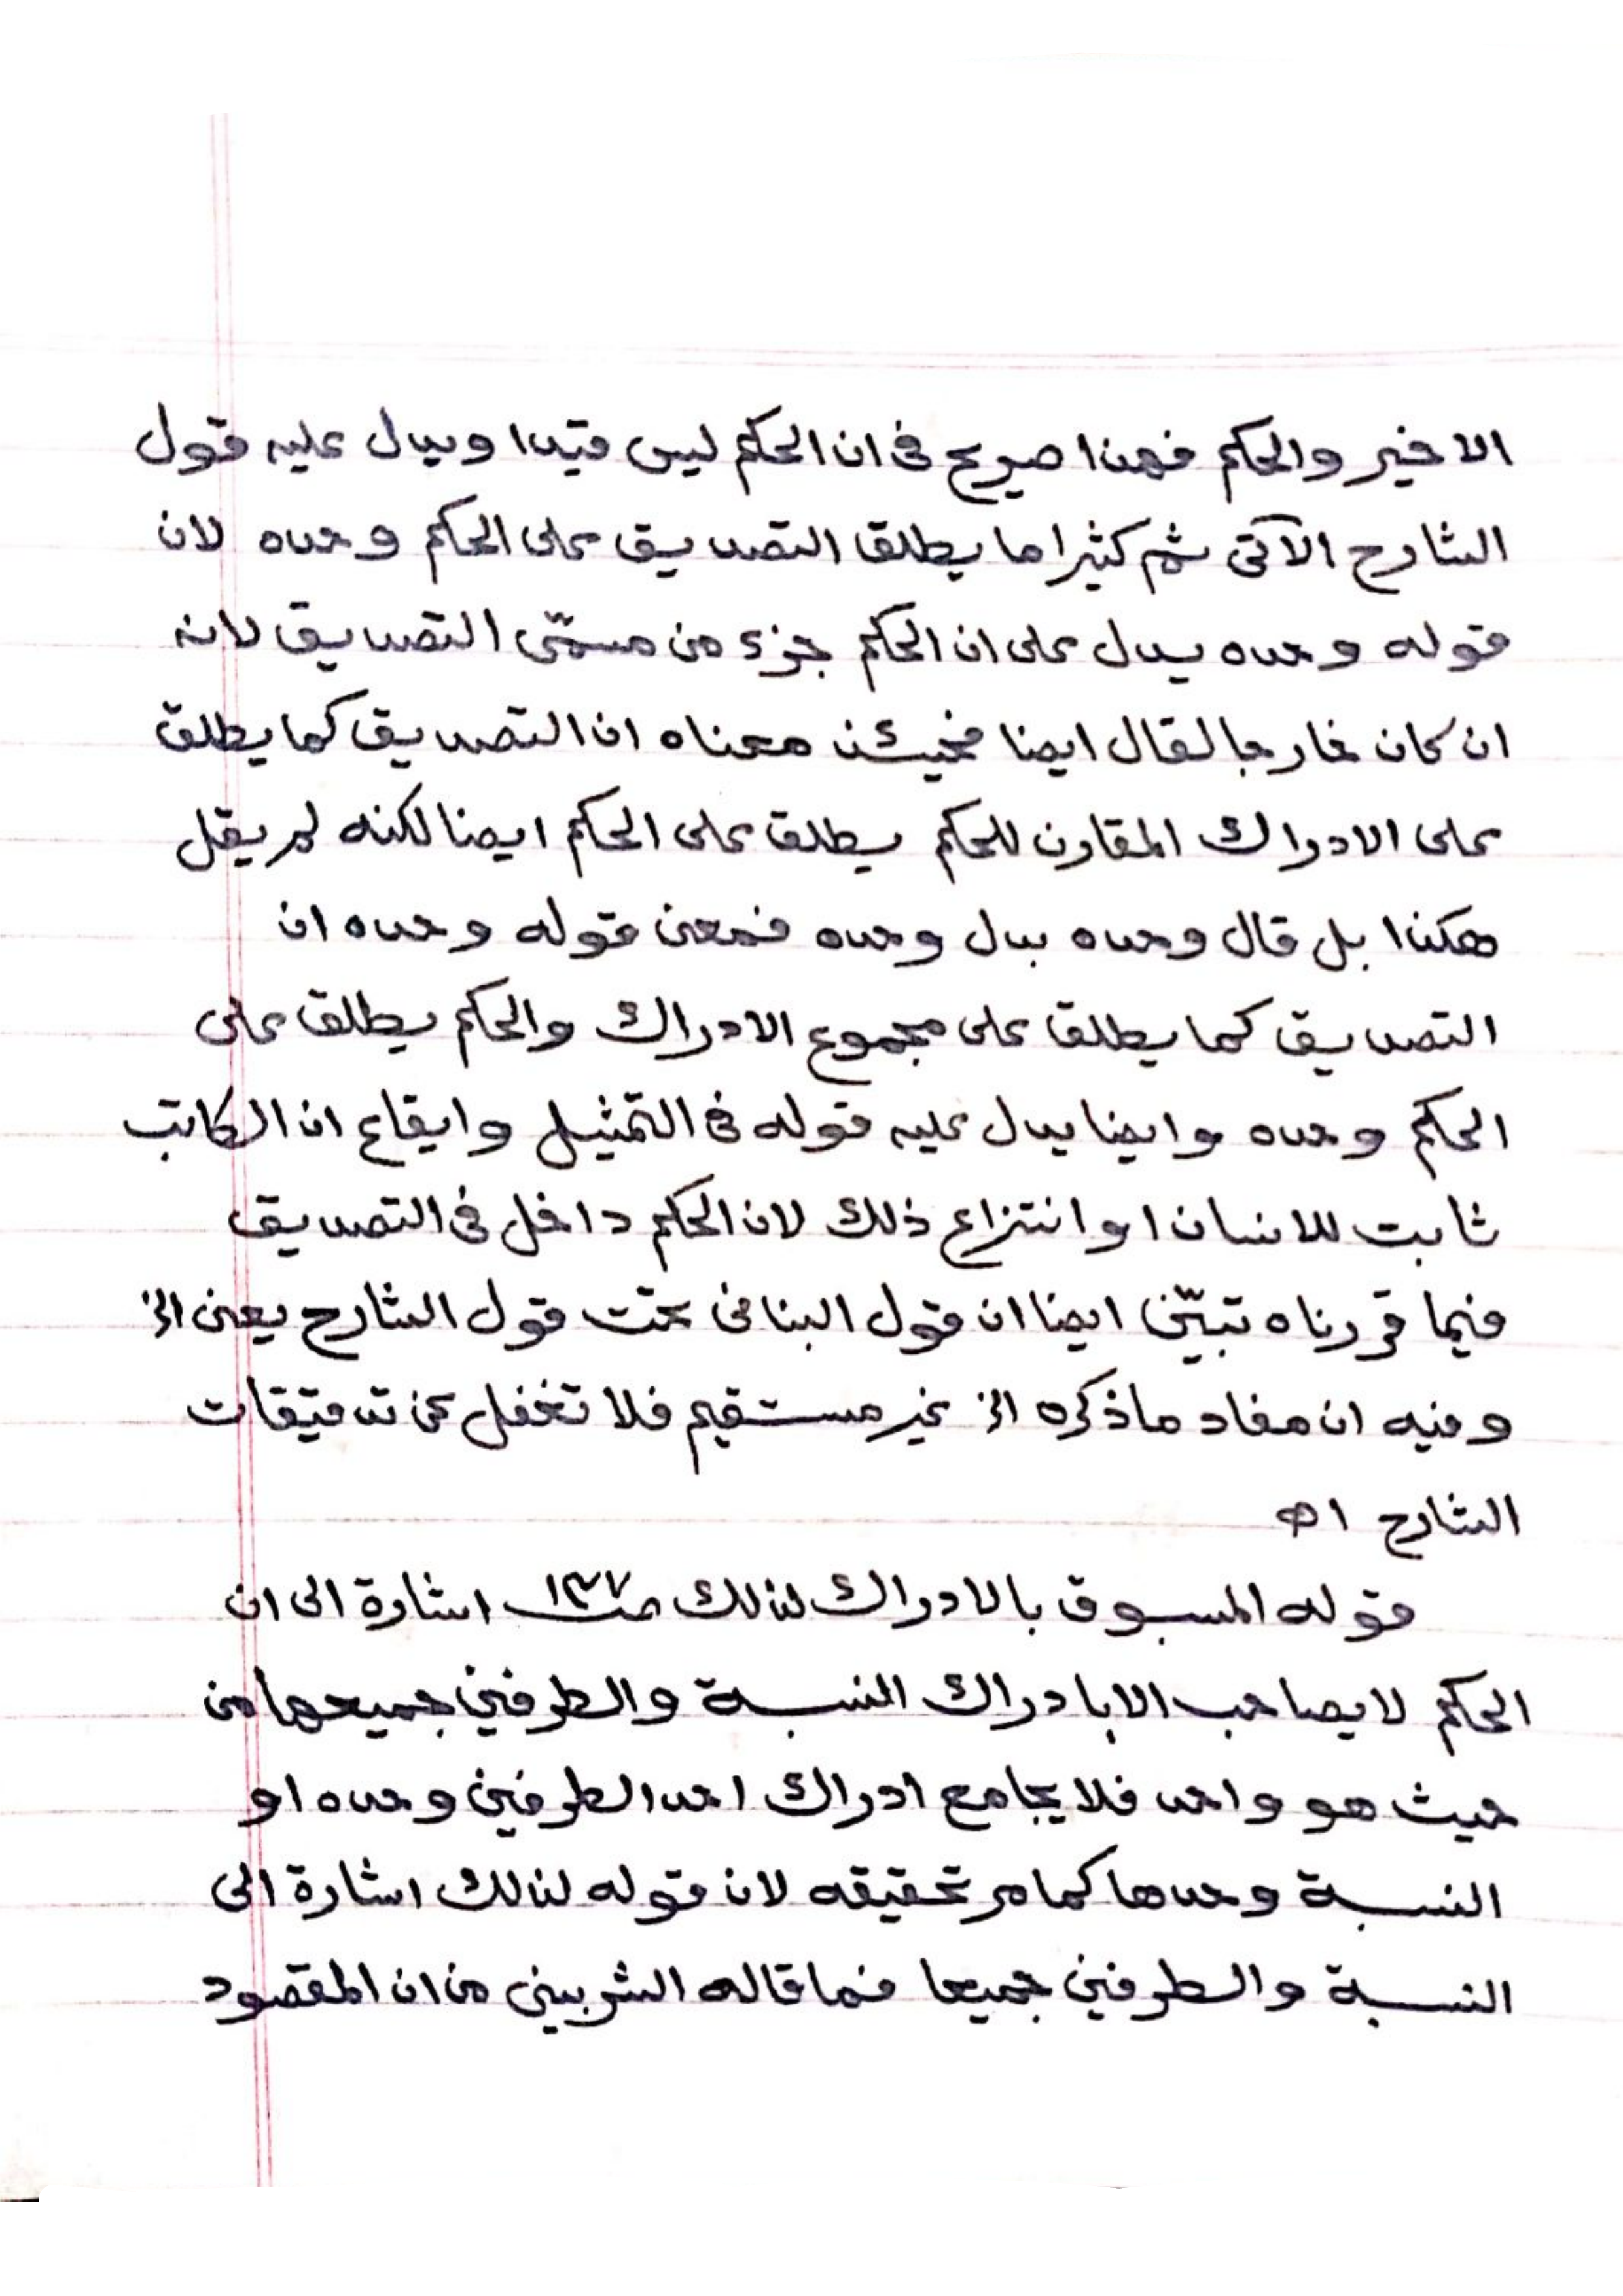 الاخير والحكم فهذا صريح فى ان الحكم ليس قيدا ويدل عليه قول
الشارح الآتى ثم كثيرا ما يطلق التصديق على الحكم وحده لان
قوله وحده يدل على ان الحكم جزء من مسمّى التصديق لانه
ان كان خارجا لقال ايضا فحينئذ معناه ان التصديق كما يطلق
على الادراك المقارن للحكم يطلق على الحكم ايضا لكنه لم يقل
هكذا بل قال وحده بدل وحده فمعنى قوله وحده ان
التصديق كما يطلق على مجموع الادراك والحكم يطلق على
الحكم وحده وايضا يدل عليه قوله فى التمثيل وايقاع ان الكاتب
ثابت للانسان او انتزاع ذلك لان الحكم داخل فى التصديق
فيما قررناه تبيّن ايضا ان قول البنانى تحت قول الشارح يعنى الخ
وفيه ان مفاد ماذكره الخ غير مستقيم فلا تغفل عن تدقيقات
الشارح اه
قوله المسبوق بالادراك لذلك صـ١٣٧ اشارة الى ان
الحكم لا يصاحب الا بادراك النسبة والطرفين جميعها من
حيث هو واحد فلا يجامع ادراك احد الطرفين وحده او
النسبة وحدها كما مر تحقيقه لان قوله لذلك اشارة الى
النسبة والطرفين جميعا فما قاله الشربينى من ان المقصود